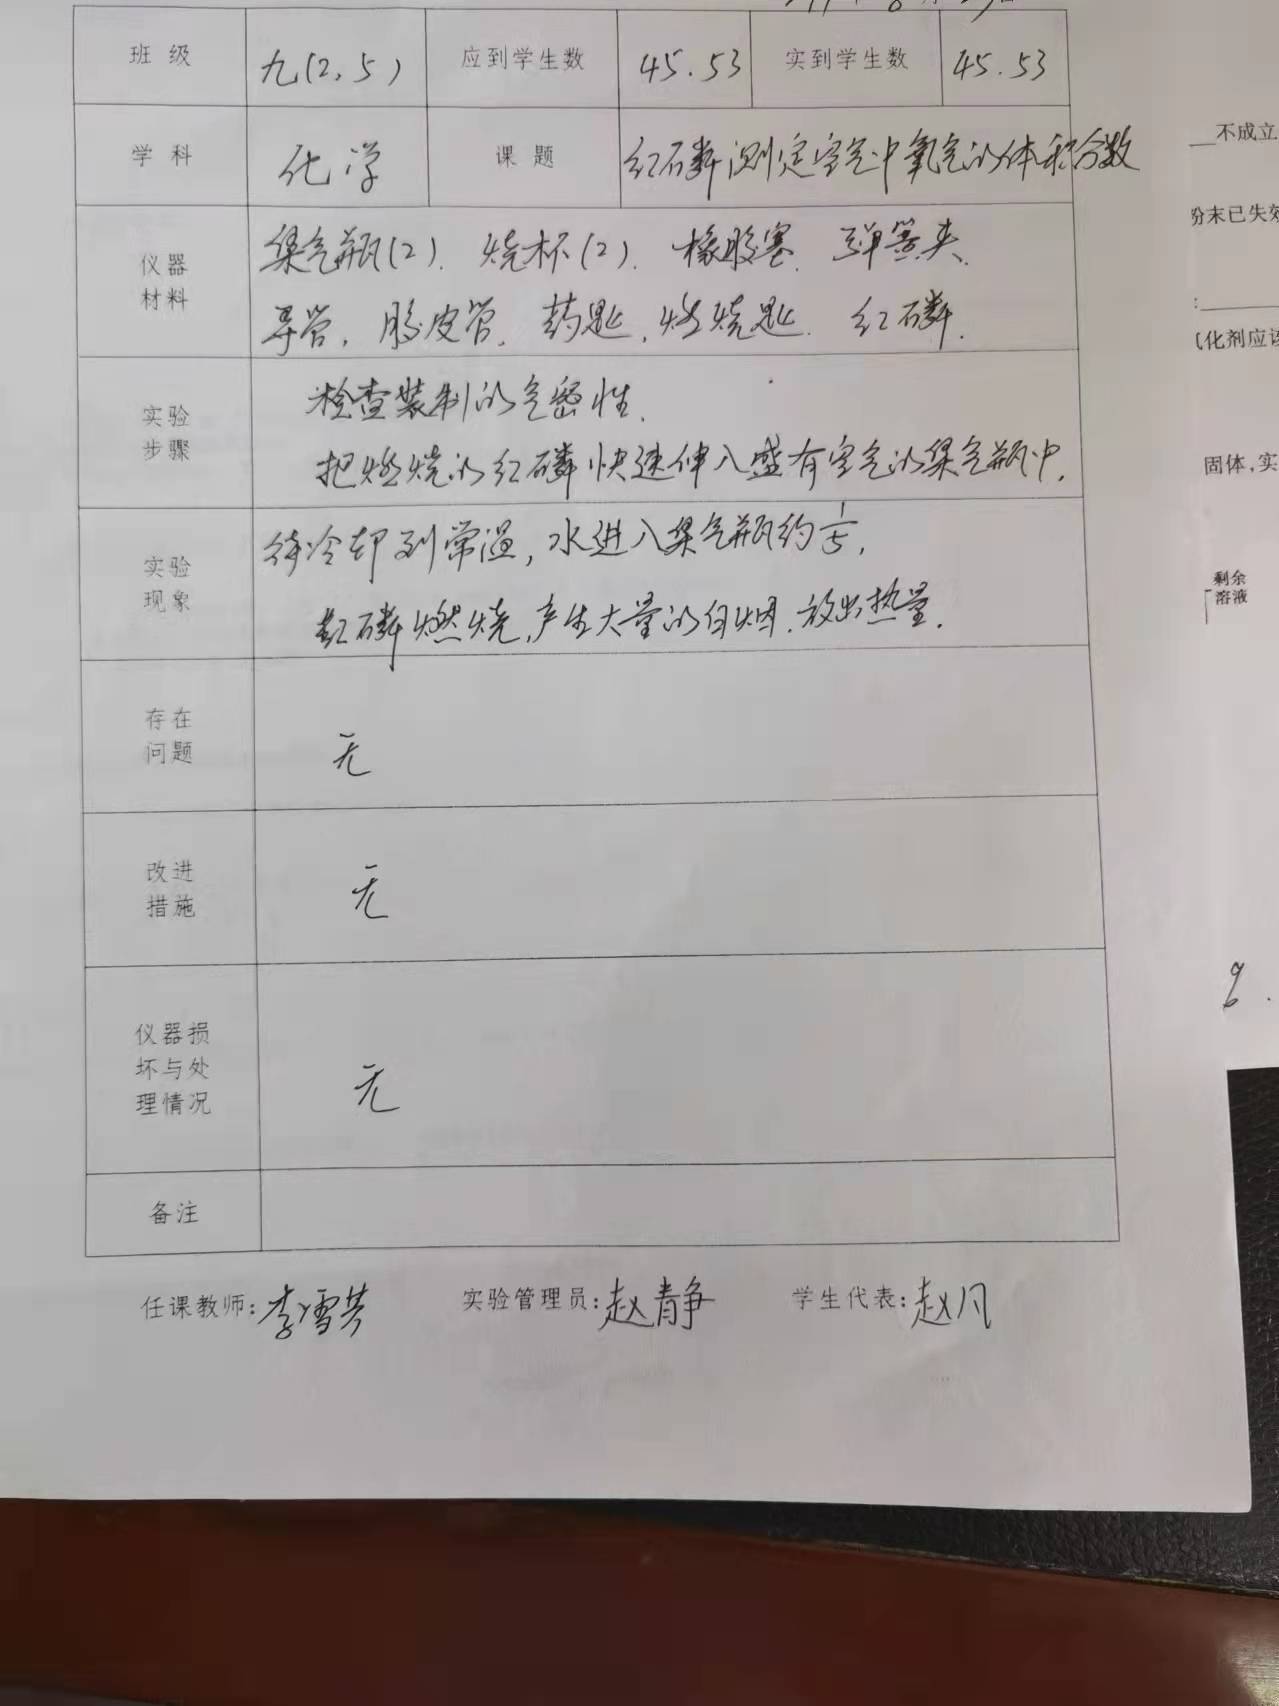 班级 九(2,5) 应到学生数 45.53 实到学生数 45.53
学科 化学 课题 红石磷测定空气中氧气的体积分数
仪器材料
集气瓶(2). 烧杯(2). 橡胶塞. 弹簧夹.
导管, 胶皮管. 药匙, 燃烧匙. 红磷.
实验步骤
检查装制的气密性.
把燃烧的红磷快速伸入盛有空气的集气瓶中.
实验现象
待冷却到常温, 水进入集气瓶约1/5,
红磷燃烧,产生大量的白烟.放出热量.
存在问题
无
改进措施
无
仪器损坏与处理情况
无
备注
任课教师:李雪芳 实验管理员:赵静 学生代表:赵凡
不成立
粉末已失效
化剂应该
固体,实
剩余
溶液